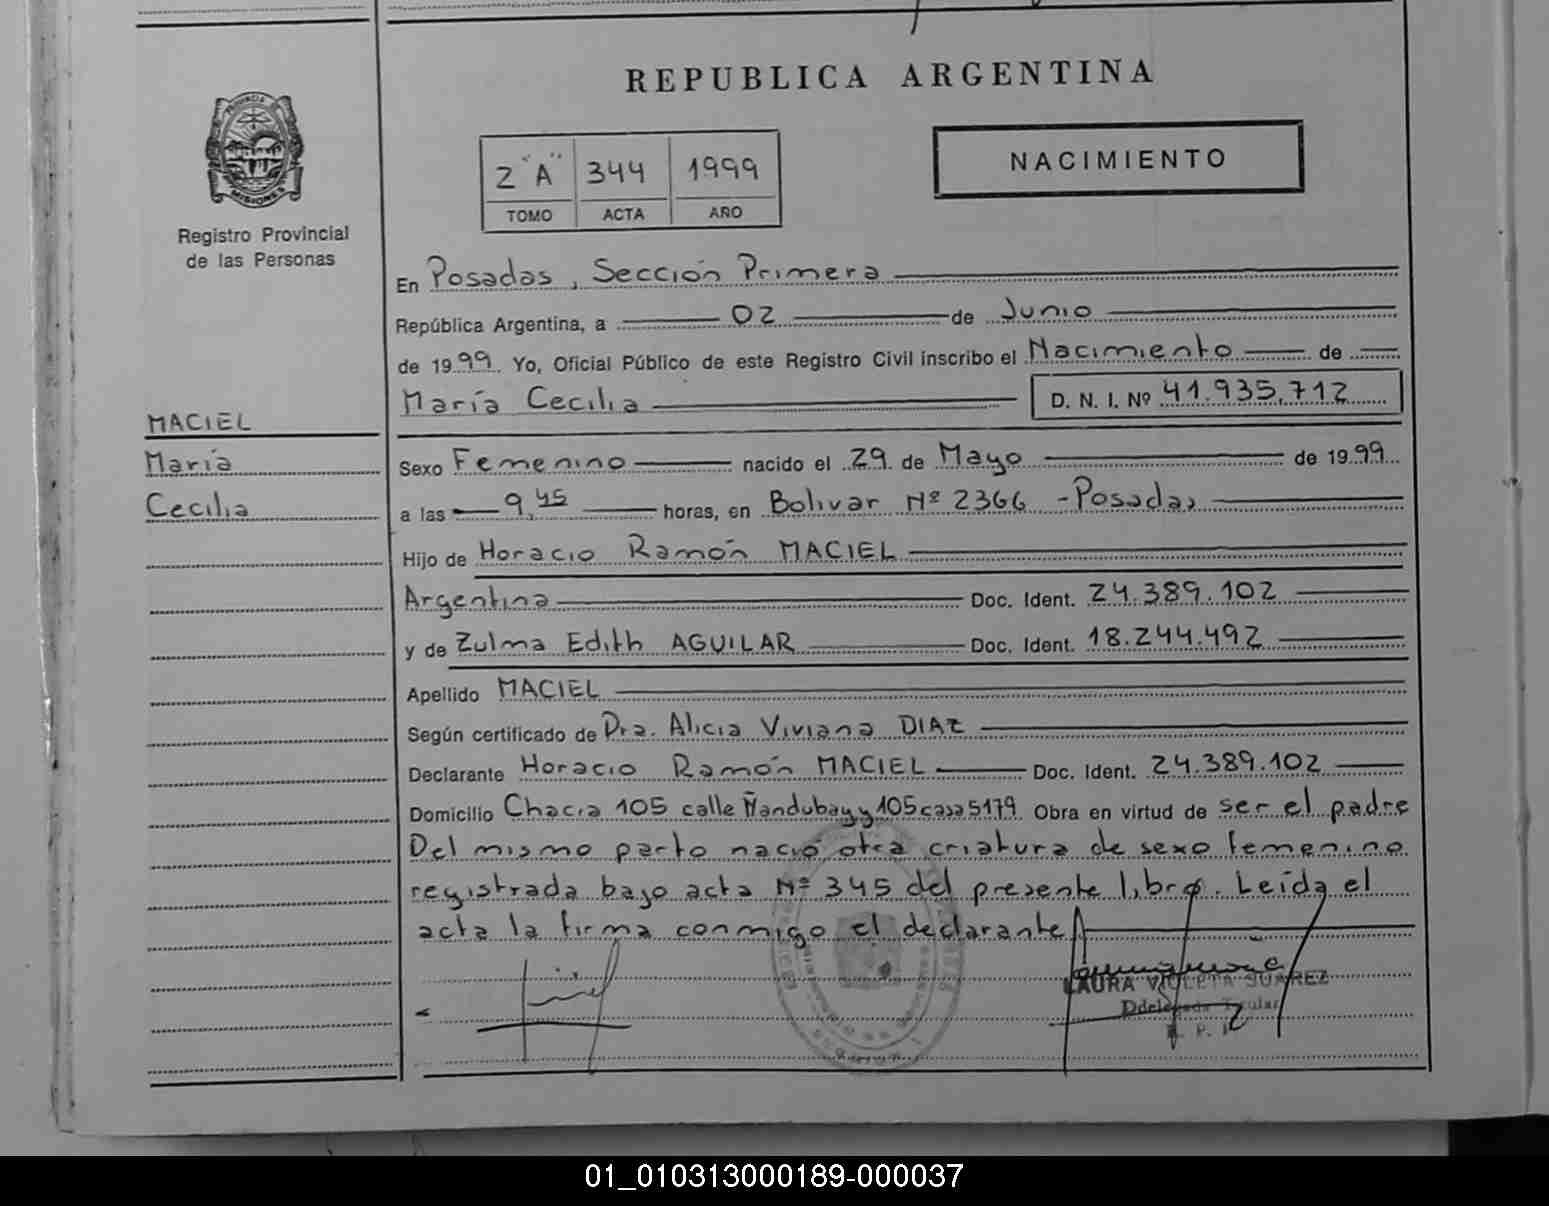 REPUBLICA ARGENTINA
PROVINCIA DE
MISIONES
Registro Provincial
de las Personas
2 "A" 344 1999
TOMO ACTA AÑO
NACIMIENTO
En Posadas, Sección Primera
República Argentina, a 02 de Junio
de 1999 Yo, Oficial Público de este Registro Civil inscribo el Nacimiento de
María Cecilia D. N. I. Nº 41.935.712
MACIEL
María
Cecilia
Sexo Femenino nacido el 29 de Mayo de 1999
a las 9,45 horas, en Bolivar Nº 2366 - Posadas
Hijo de Horacio Ramón MACIEL
Argentina Doc. Ident. 24.389.102
y de Zulma Edith AGUILAR Doc. Ident. 18.244.492
Apellido MACIEL
Según certificado de Dra. Alicia Viviana DIAZ
Declarante Horacio Ramón MACIEL Doc. Ident. 24.389.102
Domicilio Chacra 105 calle Ñandubay y 105 casa 5179 Obra en virtud de ser el padre
Del mismo parto nació otra criatura de sexo femenino
registrada bajo acta Nº 345 del presente libro. Leída el
acta la firma conmigo el declarante
LAURA VIOLETA SUAREZ
Ddelegada Titular
01_010313000189-000037